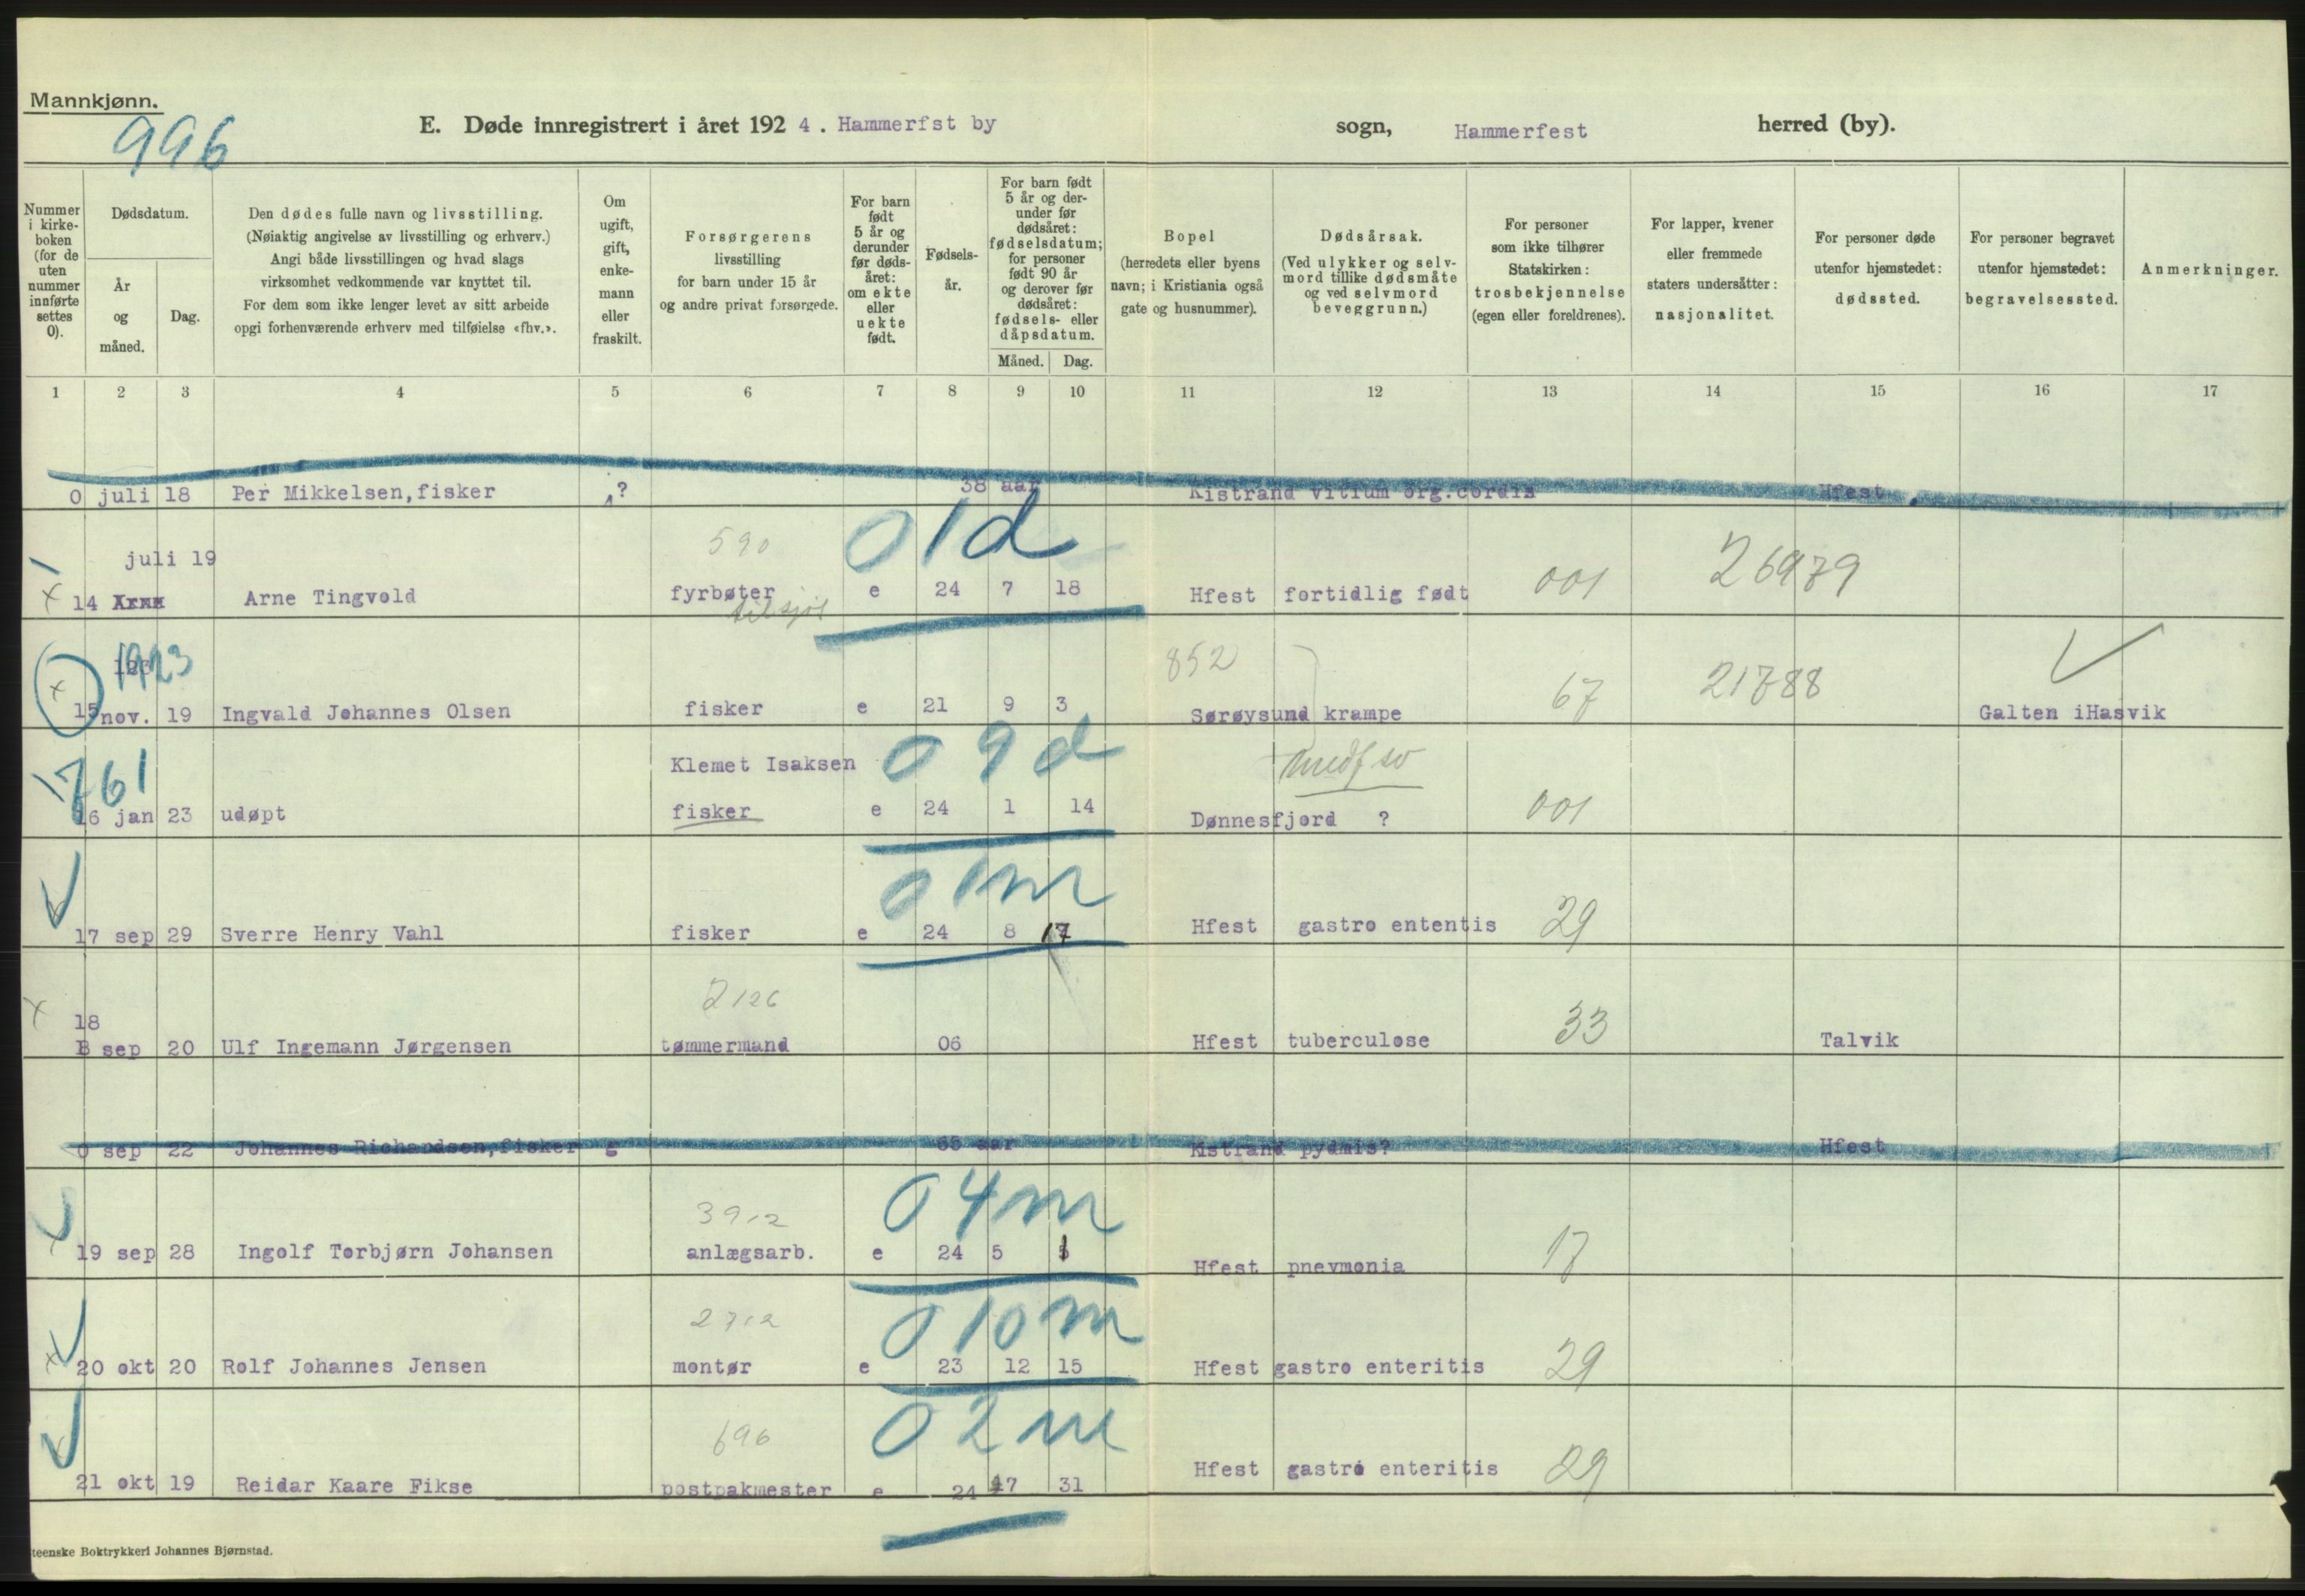 Mannkjønn.
996
E. Døde innregistrert i året 192 4 . Hammerfst by sogn, Hammerfest herred (by).
Nummer i kirke-boken (for de uten nummer innførte settes 0).
Dødsdatum.
År og måned.
Dag.
Den dødes fulle navn og livsstilling.
(Nøiaktig angivelse av livsstilling og erhverv.)
Angi både livsstillingen og hvad slags
virksomhet vedkommende var knyttet til.
For dem som ikke lenger levet av sitt arbeide
opgi forhenværende erhverv med tilføielse «fhv.».
Om ugift, gift, enke-mann eller fraskilt.
Forsørgerens
livsstilling
for barn under 15 år
og andre privat forsørgede.
For barn født 5 år og derunder før døds-året: om ekte eller uekte født.
Fødsels-år.
For barn født 5 år og der-under før dødsåret: fødselsdatum; for personer født 90 år og derover før dødsåret: fødsels- eller dåpsdatum.
Måned. Dag.
Bopel
(herredets eller byens
navn; i Kristiania også
gate og husnummer).
Dødsårsak.
(Ved ulykker og selv-
mord tillike dødsmåte
og ved selvmord
beveggrunn.)
For personer
som ikke tilhører
Statskirken:
trosbekjennelse
(egen eller foreldrenes).
For lapper, kvener
eller fremmede
staters undersåtter:
nasjonalitet.
For personer døde
utenfor hjemstedet:
dødssted.
For personer begravet
utenfor hjemstedet:
begravelsessted.
Anmerkninger.
1 2 3 4 5 6 7 8 9 10 11 12 13 14 15 16 17
0 juli 18 Per Mikkelsen,fisker ? 38 aar Kistrand vitium org.cordis Hfest
590 01d 26979
juli 19
14 Arne Tingvold fyrbøter e 24 7 18 Hfest fortidlig født 001
tilsjøs
1923 852
15 nov. 19 Ingvald Johannes Olsen fisker e 21 9 3 Sørøysund krampe 67 21788 Galten iHasvik
761 Klemet Isaksen 09d medf sv
16 jan 23 udøpt fisker e 24 1 14 Dønnesfjord ? 001
01m
17 sep 29 Sverre Henry Vahl fisker e 24 8 17 Hfest gastro ententis 29
2126
18
B sep 20 Ulf Ingemann Jørgensen tømmermand 06 Hfest tuberculose 33 Talvik
0 sep 22 Johannes Richardsen,fisker g 65 aar Kistrand pydmis? Hfest
3912 04m
19 sep 28 Ingolf Torbjørn Johansen anlægsarb. e 24 5 1 Hfest pnevmonia 17
2712 010m
20 okt 20 Rolf Johannes Jensen montør e 23 12 15 Hfest gastro enteritis 29
696 02m
21 okt 19 Reidar Kaare Fikse postpakmester e 24 7 31 Hfest gastro enteritis 29
teenske Boktrykkeri Johannes Bjørnstad.